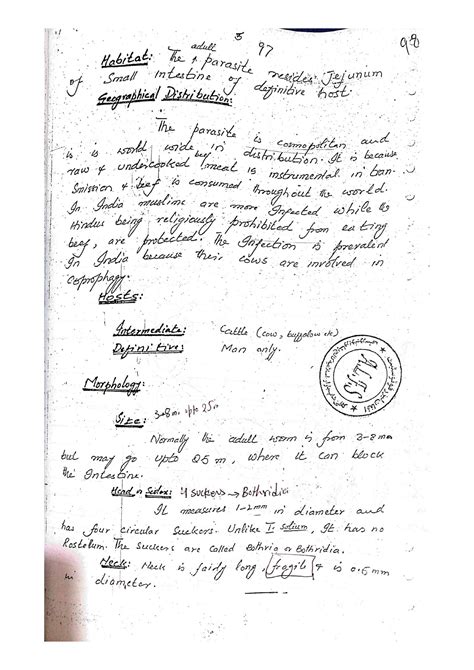 3
97
98
Habitat: The adult parasite resides Jejunum
of Small intestine of definitive host.
Geographical Distribution:
The parasite is cosmopolitan and
is is world wide in distribution. It is because
raw & undercooked beef meat is instrumental in tran-
smission & beef is consumed throughout the world.
In India muslims are more Infected while the
Hindus being religiously prohibited from eating
beef, are protected. The Infection is prevalent
In India because their cows are involved in
Coprophagy.
Hosts:
Intermediate: Cattle (cow, buffalow etc)
Definitive: Man only.
Morphology:
Size: 3-8m upto 25m
Normally the adult worm is from 3-8 mm
but may go upto 25 m, where it can block
the Intestine.
Head or Scolex: 4 suckers → Bothridia
It measures 1-2mm in diameter and
has four circular Suckers. Unlike T. solium, It has no
Rostelum. The Suckers are called Bothria or Bothridia.
Neck: Neck is fairly long, fragile & is 0.5mm
in diameter.